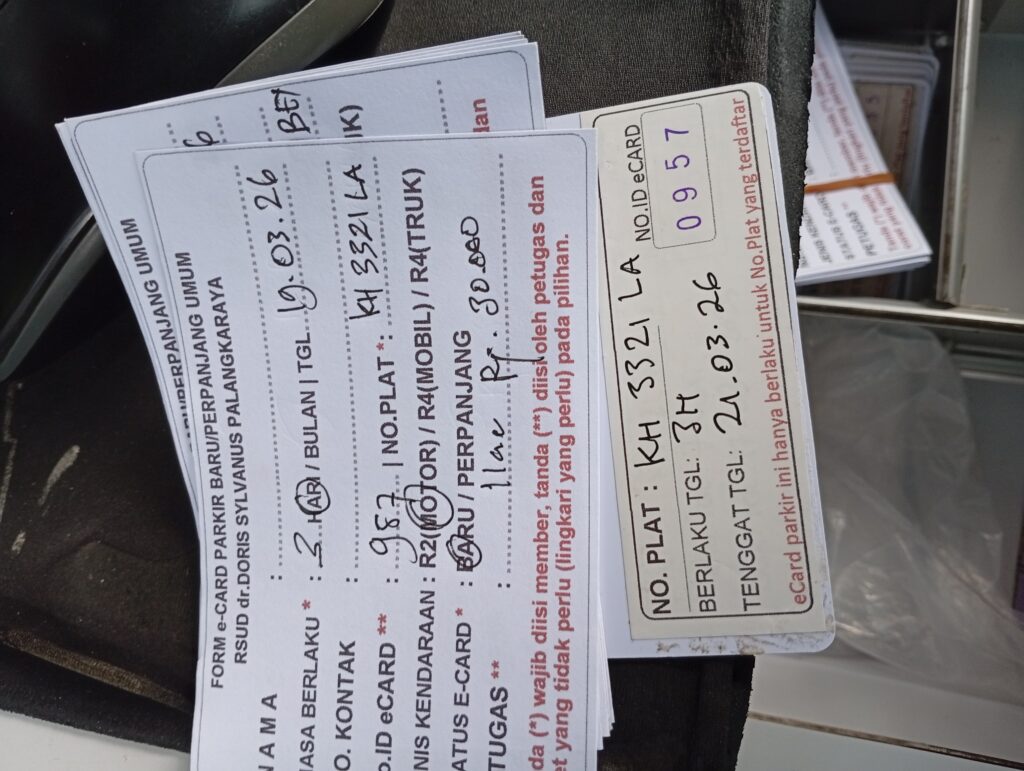 BARU/PERPANJANG UMUM
FORM e-CARD PARKIR BARU/PERPANJANG UMUM
RSUD dr.DORIS SYLVANUS PALANGKARAYA
A M A :
ASA BERLAKU * : 3 HARI / BULAN | TGL 19.03.26
O. KONTAK :
O.ID eCARD ** : 957 | NO.PLAT*: KH 3321 LA
NIS KENDARAAN : R2(MOTOR) / R4(MOBIL) / R4(TRUK)
ATUS E-CARD * : BARU / PERPANJANG
TUGAS ** : Ilae Rp. 30.000
da (*) wajib diisi member, tanda (**) diisi oleh petugas dan
et yang tidak perlu (lingkari yang perlu) pada pilihan.
NO. PLAT : KH 3321 LA
NO.ID eCARD
0957
BERLAKU TGL: 3H
TENGGAT TGL: 21.03.26
eCard parkir ini hanya berlaku untuk No.Plat yang terdaftar